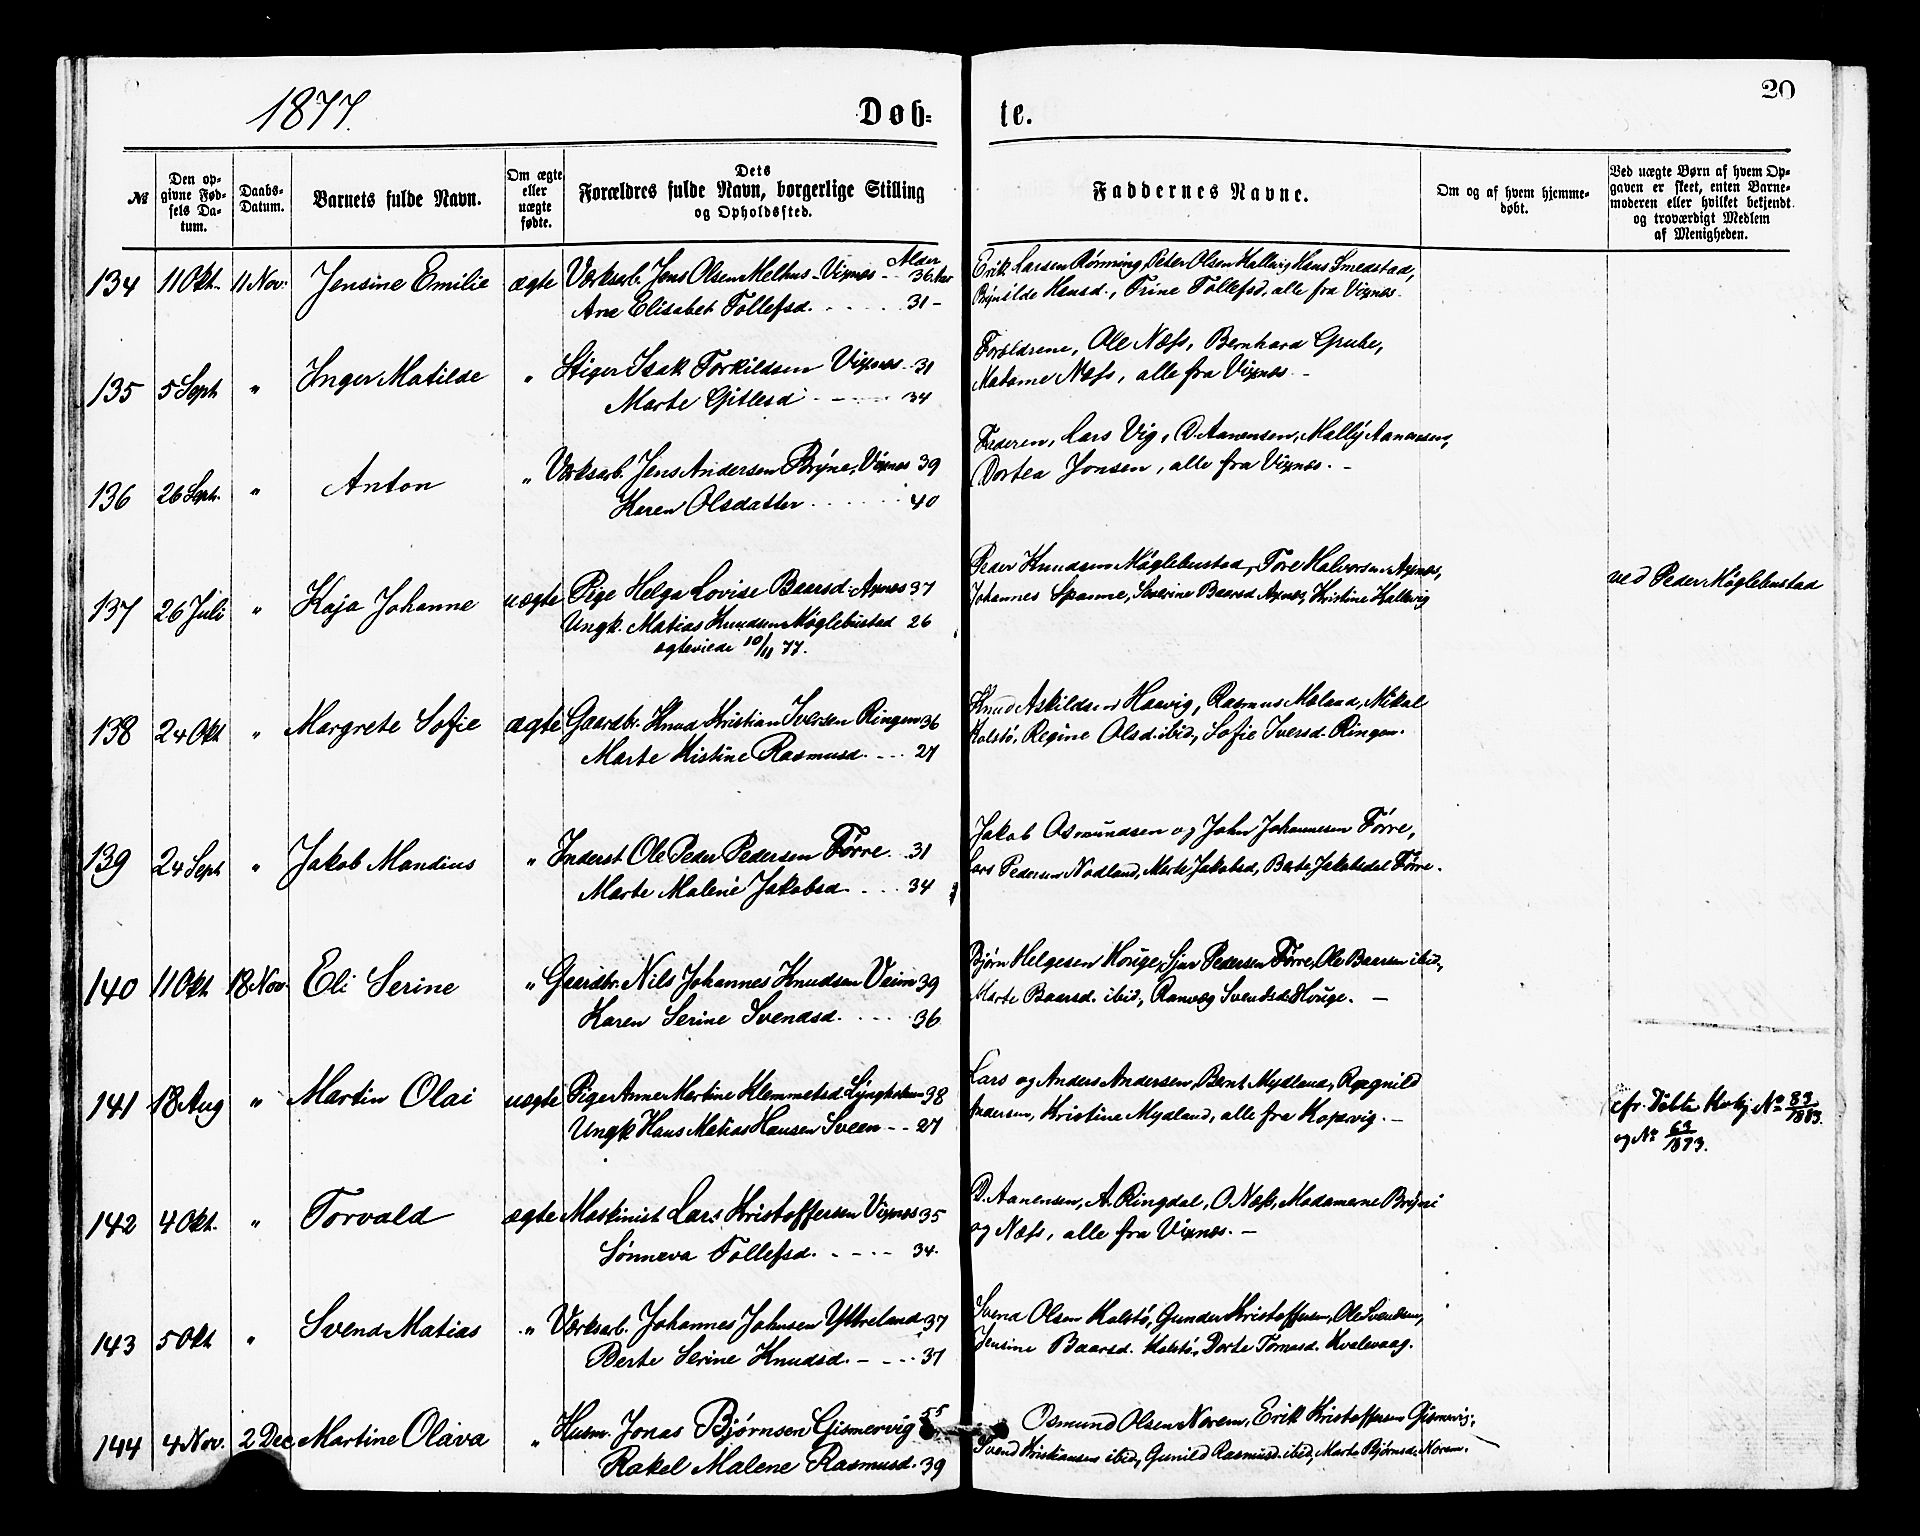 1877.
Døb=
te.
20
№
Den op-
givne Fød-
sels Da-
tum.
Daabs-
Datum.
Barnets fulde Navn.
Om ægte
eller
uægte
fødte.
Dets
Forældres fulde Navn, borgerlige Stilling
og Opholdssted.
Faddernes Navne.
Om og af hvem hjemme-
døbt.
Ved uægte Børn af hvem Op-
gaven er skeet, enten Barne-
moderen eller hvilket bekjendt
og troværdigt Medlem
af Menigheden.
Alder
134 11 Okt. 11 Nov. Jensine Emilie ægte Værksarb. Jens Olsen Melhus - Vixnæs - 36 Aar
Ane Elisabet Tollefsd. 31 -
Erik Larsen Rønning, Peter Olsen Hallvig Hans Smedstad,
Brynilde Hansd., Trine Tollefsd, alle fra Vixnæs.
135 5 Sept " Inger Matilde " Stiger Isak Torkildsen Vixnæs 31
Marte Gitlesd 34
Forældrene, Ole Næss, Bernhard Grube,
Madame Næss, alle fra Vixnæs -
136 26 Sept. " Anton " Værksarb. Jens Andersen Bryne, Vixnæs 39
Karen Olsdatter 40
Faderen, Lars Vig, D. Aanensen, Mally Aanensen,
Dortea Jonsen, alle fra Vixnæs. -
137 26 Juli " Kaja Johanne uægte Pige Helga Lovise Baarsd. Axnæs 37
Ungk. Matias Knudsen Møglebustad 26
ægteviede 10/11 77.
Peder Knudsen Møglebustad, Tore Halvorsen Axnæs,
Johannes Spanne, Severine Baarsd Axnæs, Kristine Hallvig
ved Peder Møglebustad
138 24 Okt " Margrete Sofie ægte Gaardbr. Knud Kristian Iversen Ringen 36
Marte Kistine Rasmusd. 27
Knud Askildsen Haavig, Rasmus Meland, Mikal
Kolstø, Regine Olsd. ibid, Sofie Iversd. Ringen.
139 24 Sept " Jakob Mandius " Inderst Ole Peder Pedersen Førre 31
Marte Malene Jakobsd. 34
Jakob Osmundsen og John Johannesen Førre,
Lars Pedersen Nodland, Marte Jakobsd, Berte Jakobsdat Førre.
140 11 Okt 18 Nov. Eli Serine " Gaardbr. Nils Johannes Knudsen Veim 39
Karen Serine Svendsd. 36
Bjørn Helgesen Houge, Sjur Pedersen Førre, Ole Baarsen ibid,
Marte Baarsd. ibid, Ranveg Svendsd. Houge. -
141 18 Aug " Martin Olai uægte Pige Anne Martine Klemmetsd. 38
Ungk Hans Matias Hansen Sveen - - 27
Lars og Anders Andersen, Bernt Mydland, Ragnild
Andersen, Kristine Mydland, alle fra Kopervig. -
cfr. Døbte Kvkj № 83/1883.
og № 63/1873.
142 4 Okt. " Torvald ægte Maskinist Lars Kristoffersen Vixnæs 35
Sønneva Tollefsd. 34.
D. Aanensen, A. Ringdal, O Næss, Madamerne Bryni
og Næss, alle fra Vixnæs. -
143 5 Okt " Svend Matias " Værksarb. Johannes Johnsen Yttreland 37
Berte Serine Knudsd. 37
Svend Olsen Kolstø, Gunder Kristoffersen, Ole Svendsen,
Jensine Baarsd. Kolstø, Dorte Tomasd. Kvalevaag.
144 4 Nov. 2 Dec Martine Olava " Husm. Jonas Bjørnsen Gismervig 55
Rakel Malene Rasmusd. 39
Osmund Olsen Norem, Erik Kristoffersen Gismervig,
Svend Kristiansen ibid, Gunild Rasmusd. ibid, Marte Bjørnsd. Norem.